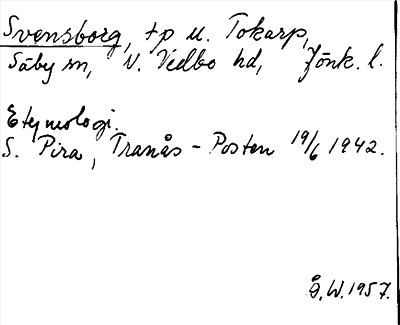 Svensborg, tp u. Tokarp,
Säby sn, N. Vedbo hd, Jönk. l.
Etymologi.
S. Pira, Tranås-Posten 19/6 1942.
Å.W.1957.